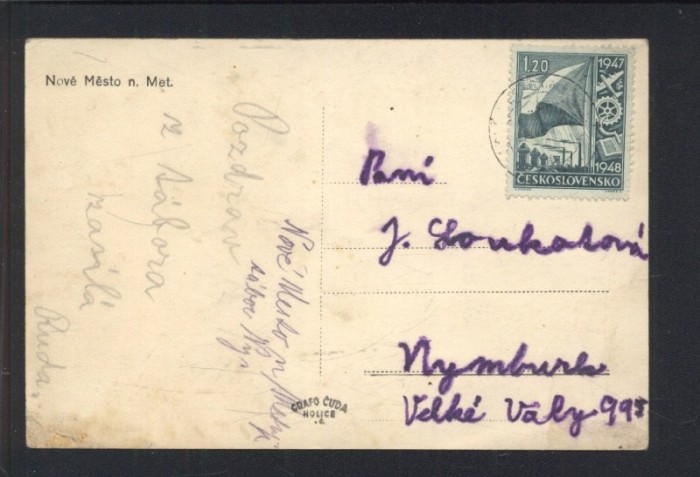 Nové Město n. Met.
Pozdrav
z tábora
zasílá
Ruda.
Nové Mesto n/Metují
tábor
GRAFO ČUDA
HOLICE
1.20
1947
1948
ČESKOSLOVENSKO
Paní
J. Loukotová
Nymburk
Velké Valy 993